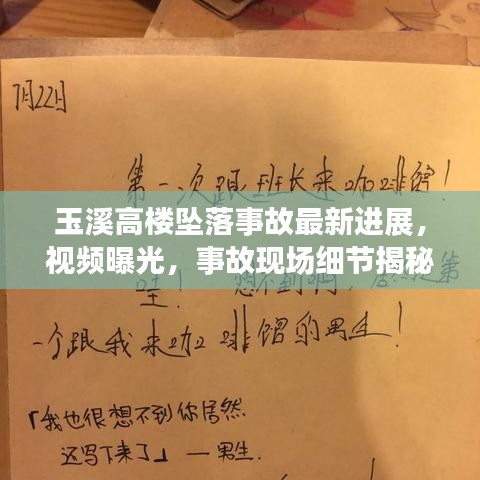 7月22日
第一次跟班长来咖啡馆！
玉溪高楼坠落事故最新进展，
视频曝光，事故现场细节揭秘
哇！想不到啊，居然是第
一个跟我来咖啡馆的男生！
「我也很想不到你居然
还写下来了」—男生.